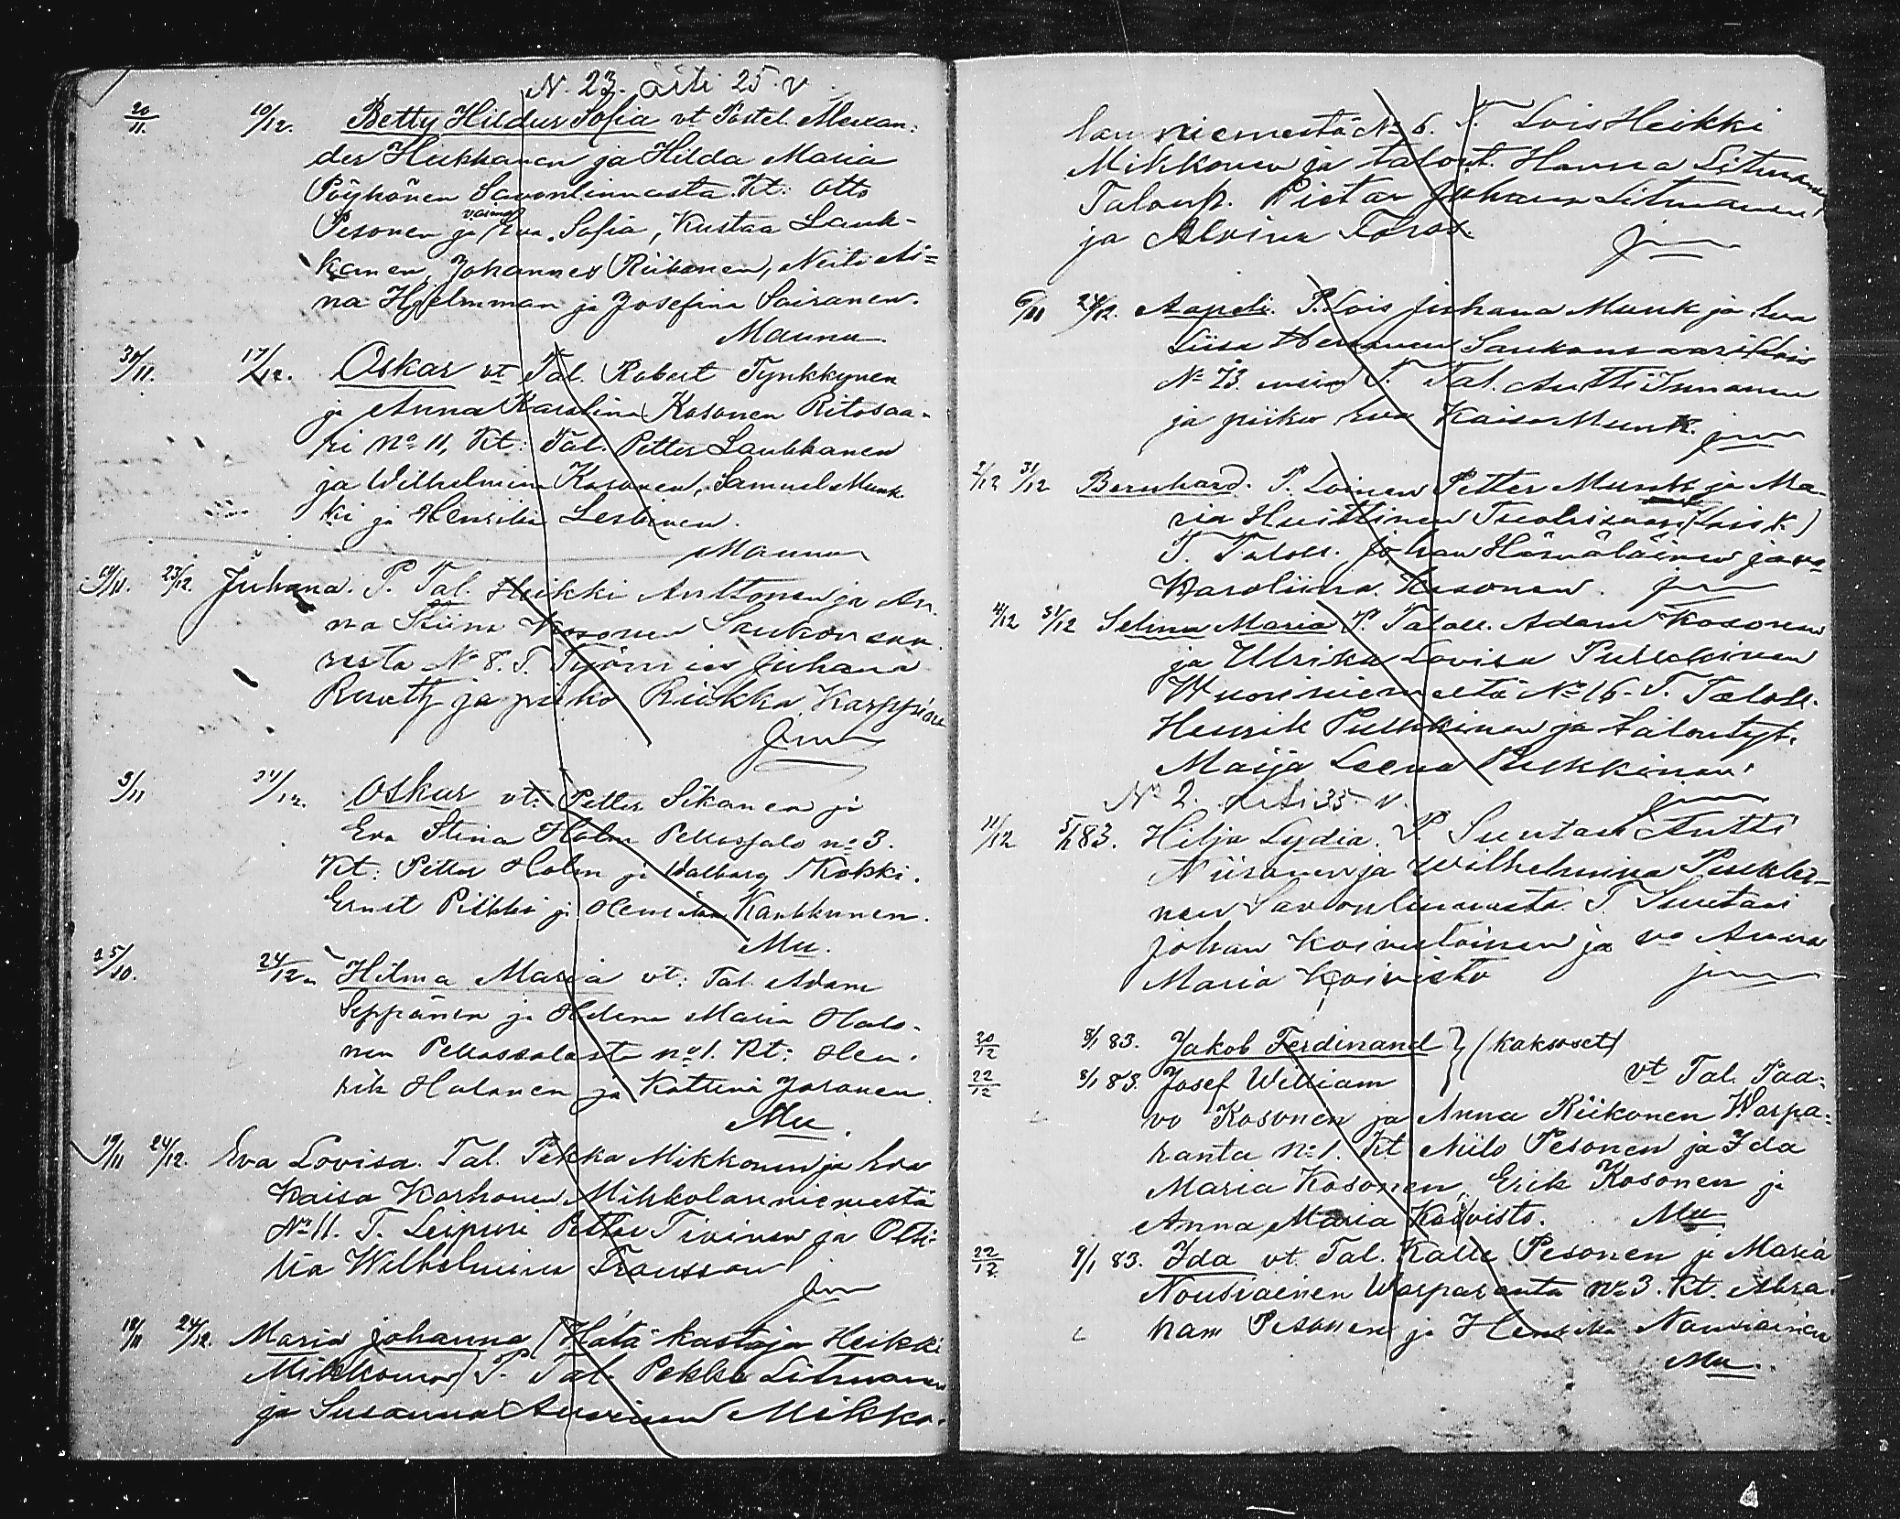 N. 23. äiti 25 v
20/11. 10/12. Betty Hildur Sofia vt Postel. Alexan-
der Heikkanen ja Hilda Maria
Pöyhönen Savonlinnasta. Kt: Otto
Pesonen ja vaimo Eva Sofia, Kustaa Lauk-
kanen, Johannes Riikonen, Neiti Mi=
na Hjelmman ja Josefina Sairanen.
Mannu
30/11. 17/12. Oskar vt Tal. Robert Tynkkynen
ja Anna Karolina Kosonen Ritosaa-
ri No 11, Kt: Tal. Petter Laukkanen
ja Wilhelmiina Kosonen, Samuel Munk
ki ja Henrika Leskinen.
Mannu
19/11. 23/12. Juhana. P. Tal. Heikki Anttonen ja An-
na Stiina Kosonen Saukonsaa
resta No 8. T. Työmies Juhana
Ruuth ja piika Riikka Karppinen
3/11 24/12. Oskar vt: Petter Sikanen ja
Eva Stina Holm Pellossalo no 3.
Kt: Petter Holm ja Walborg Kokki.
Ernst Pilkki ja Henrika Kankkunen.
Mu.
25/10. 24/12. Hilma Maria vt: Tal. Adam
Seppänen ja Helena Maria Halo-
nen Pellossalosta no 1. Kt: Hen-
rik Halonen ja Katrina Josonen.
Mu.
19/11 24/12. Eva Lovisa. Tal. Pekka Mikkonen ja Eva
Kaisa Korhonen Mikkolanniemestä
No 11. T. Leipuri Petter Tivinen ja Oti-
lia Wilhelmiina Fransson
18/11 24/12. Maria Johanna (Hätä kastaja Heikki
Mikkonen) P. Tal. Pekka Litmanen
ja Susanna Auvinen Mikko-
lanniemestä No 6. T. Lois Heikki
Mikkonen ja talont. Hanna Litmanen
Talonp. Pietar Juhana Litmanen
ja Alvina Toros.
6/11 24/12. Aapeli. P. Lois Juhana Munk ja Eva
Liisa Hernonen Saukonsaari Lois
No 23. T. Tal. Antti Innanen
ja piika Eva Kaisa Munk.
2/12 31/12 Bernhard. P. Loinen Petter Munk ja Ma-
ria Huittinen Tuohisaari (Lois k.)
T. Taloll. Johan Hämäläinen ja vo
Karoliina Kosonen.
4/12 31/12 Selma Maria P. Taloll. Adam Kosonen
ja Ulrika Lovisa Pulkkinen
Wuoriniemeltä No 16. T. Taloll.
Henrik Pulkkinen ja talontyt.
Maija Leena Pulkkinen.
No 2. äiti 35 v.
11/12 5/1 83. Hilja Lydia. P Suutari Antti
Niiranen ja Wilhelmina Pulkki-
nen Savonlinnasta. T. Suutari
Johan Koivistoinen ja vo Anna
Maria Koivisto
20/12 8/1 83. Jakob Ferdinand } (kaksoset)
22/12 8/1 83. Josef William vt Tal. Paa-
vo Kosonen ja Anna Riikonen Warpa-
ranta No 1. Kt Niilo Pesonen ja Ida
Maria Kosonen, Erik Kosonen ja
Anna Maria Koivisto. Mu
22/12 9/1 83. Ida vt. Tal. Kalle Pesonen ja Maria
Nousiainen Warparanta No 3. Kt. Abra-
ham Pesonen ja Henrika Nousiainen
Mu.